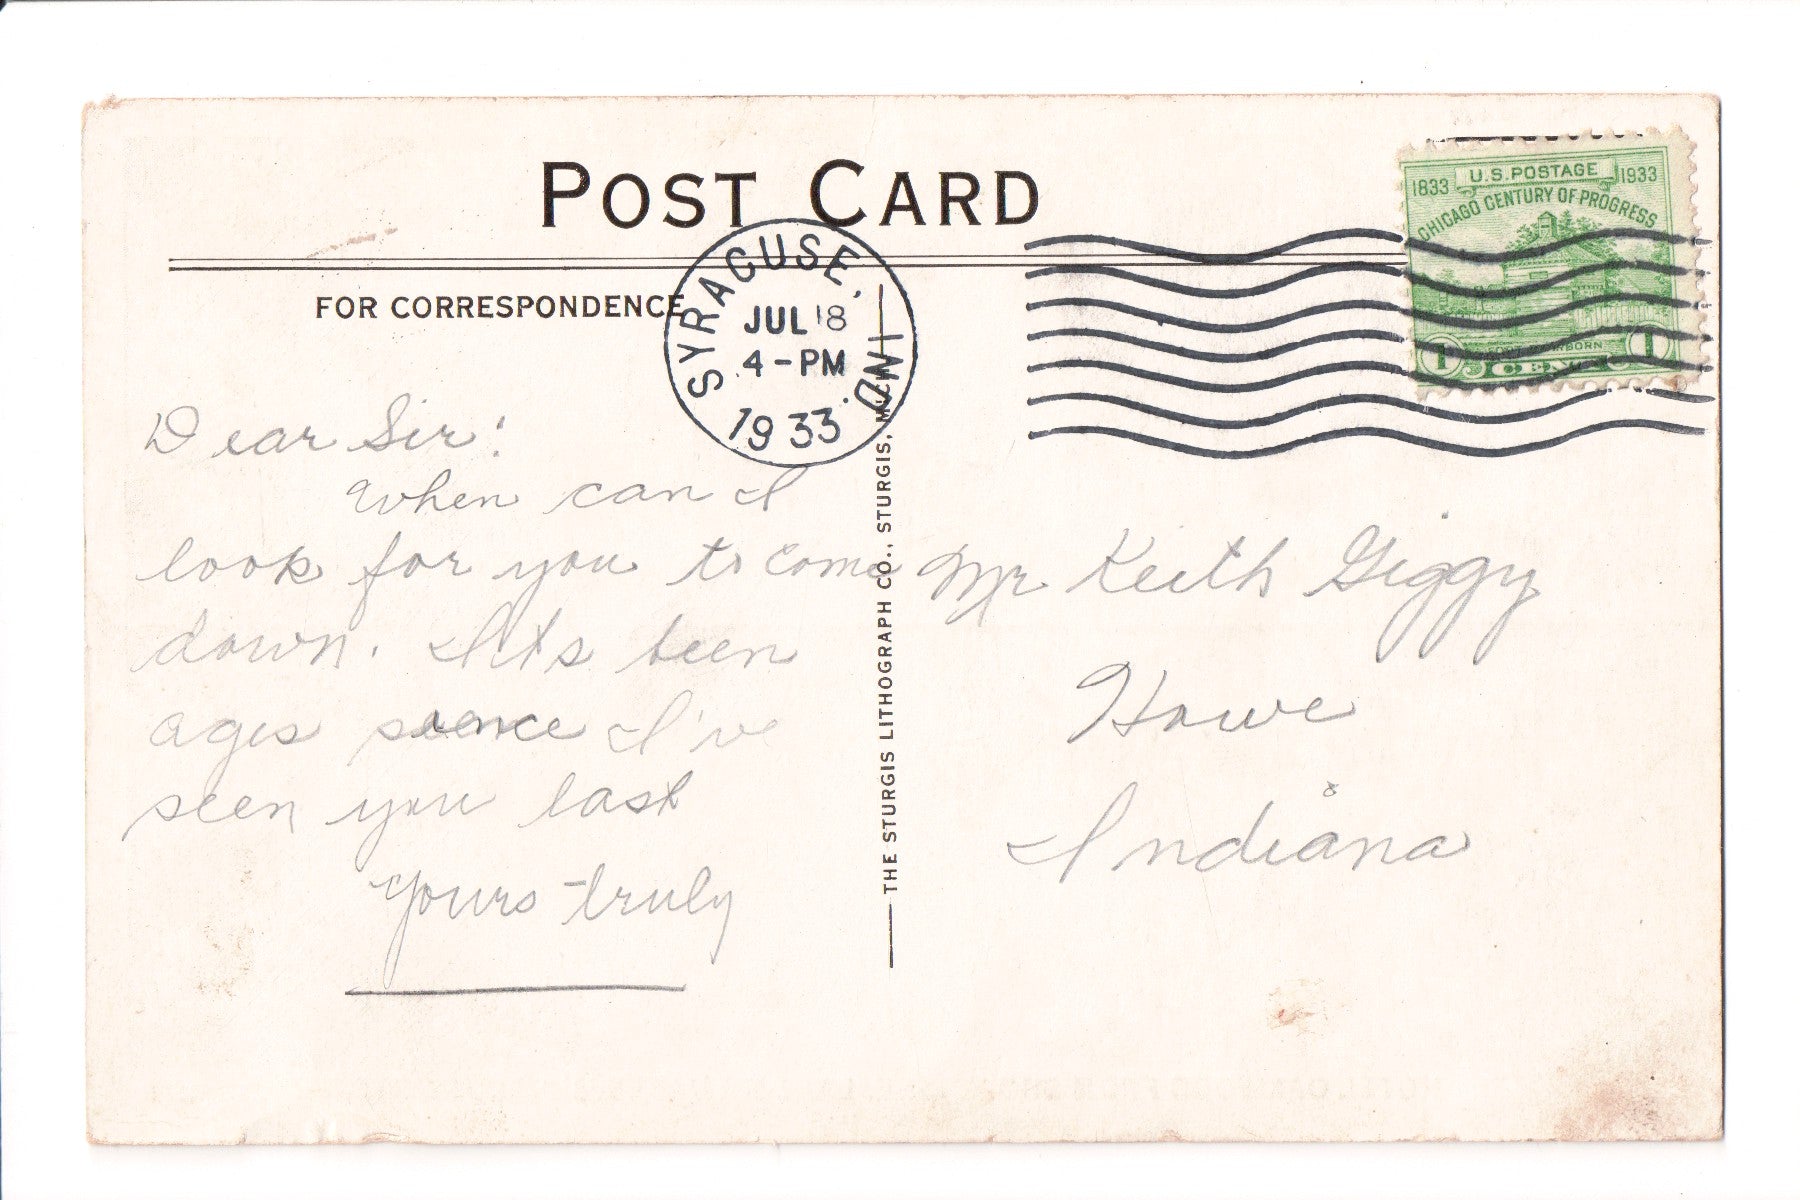 POST CARD
FOR CORRESPONDENCE
SYRACUSE, IND.
JUL 18
4-PM
1933
1833 U.S. POSTAGE 1933
CHICAGO CENTURY OF PROGRESS
1 CENT 1
Dear Sir:
When can I
look for you to come
down. It's been
ages since I've
seen you last
Yours truly
THE STURGIS LITHOGRAPH CO., STURGIS, MICH.
Mr Keith Giggy
Howe
Indiana